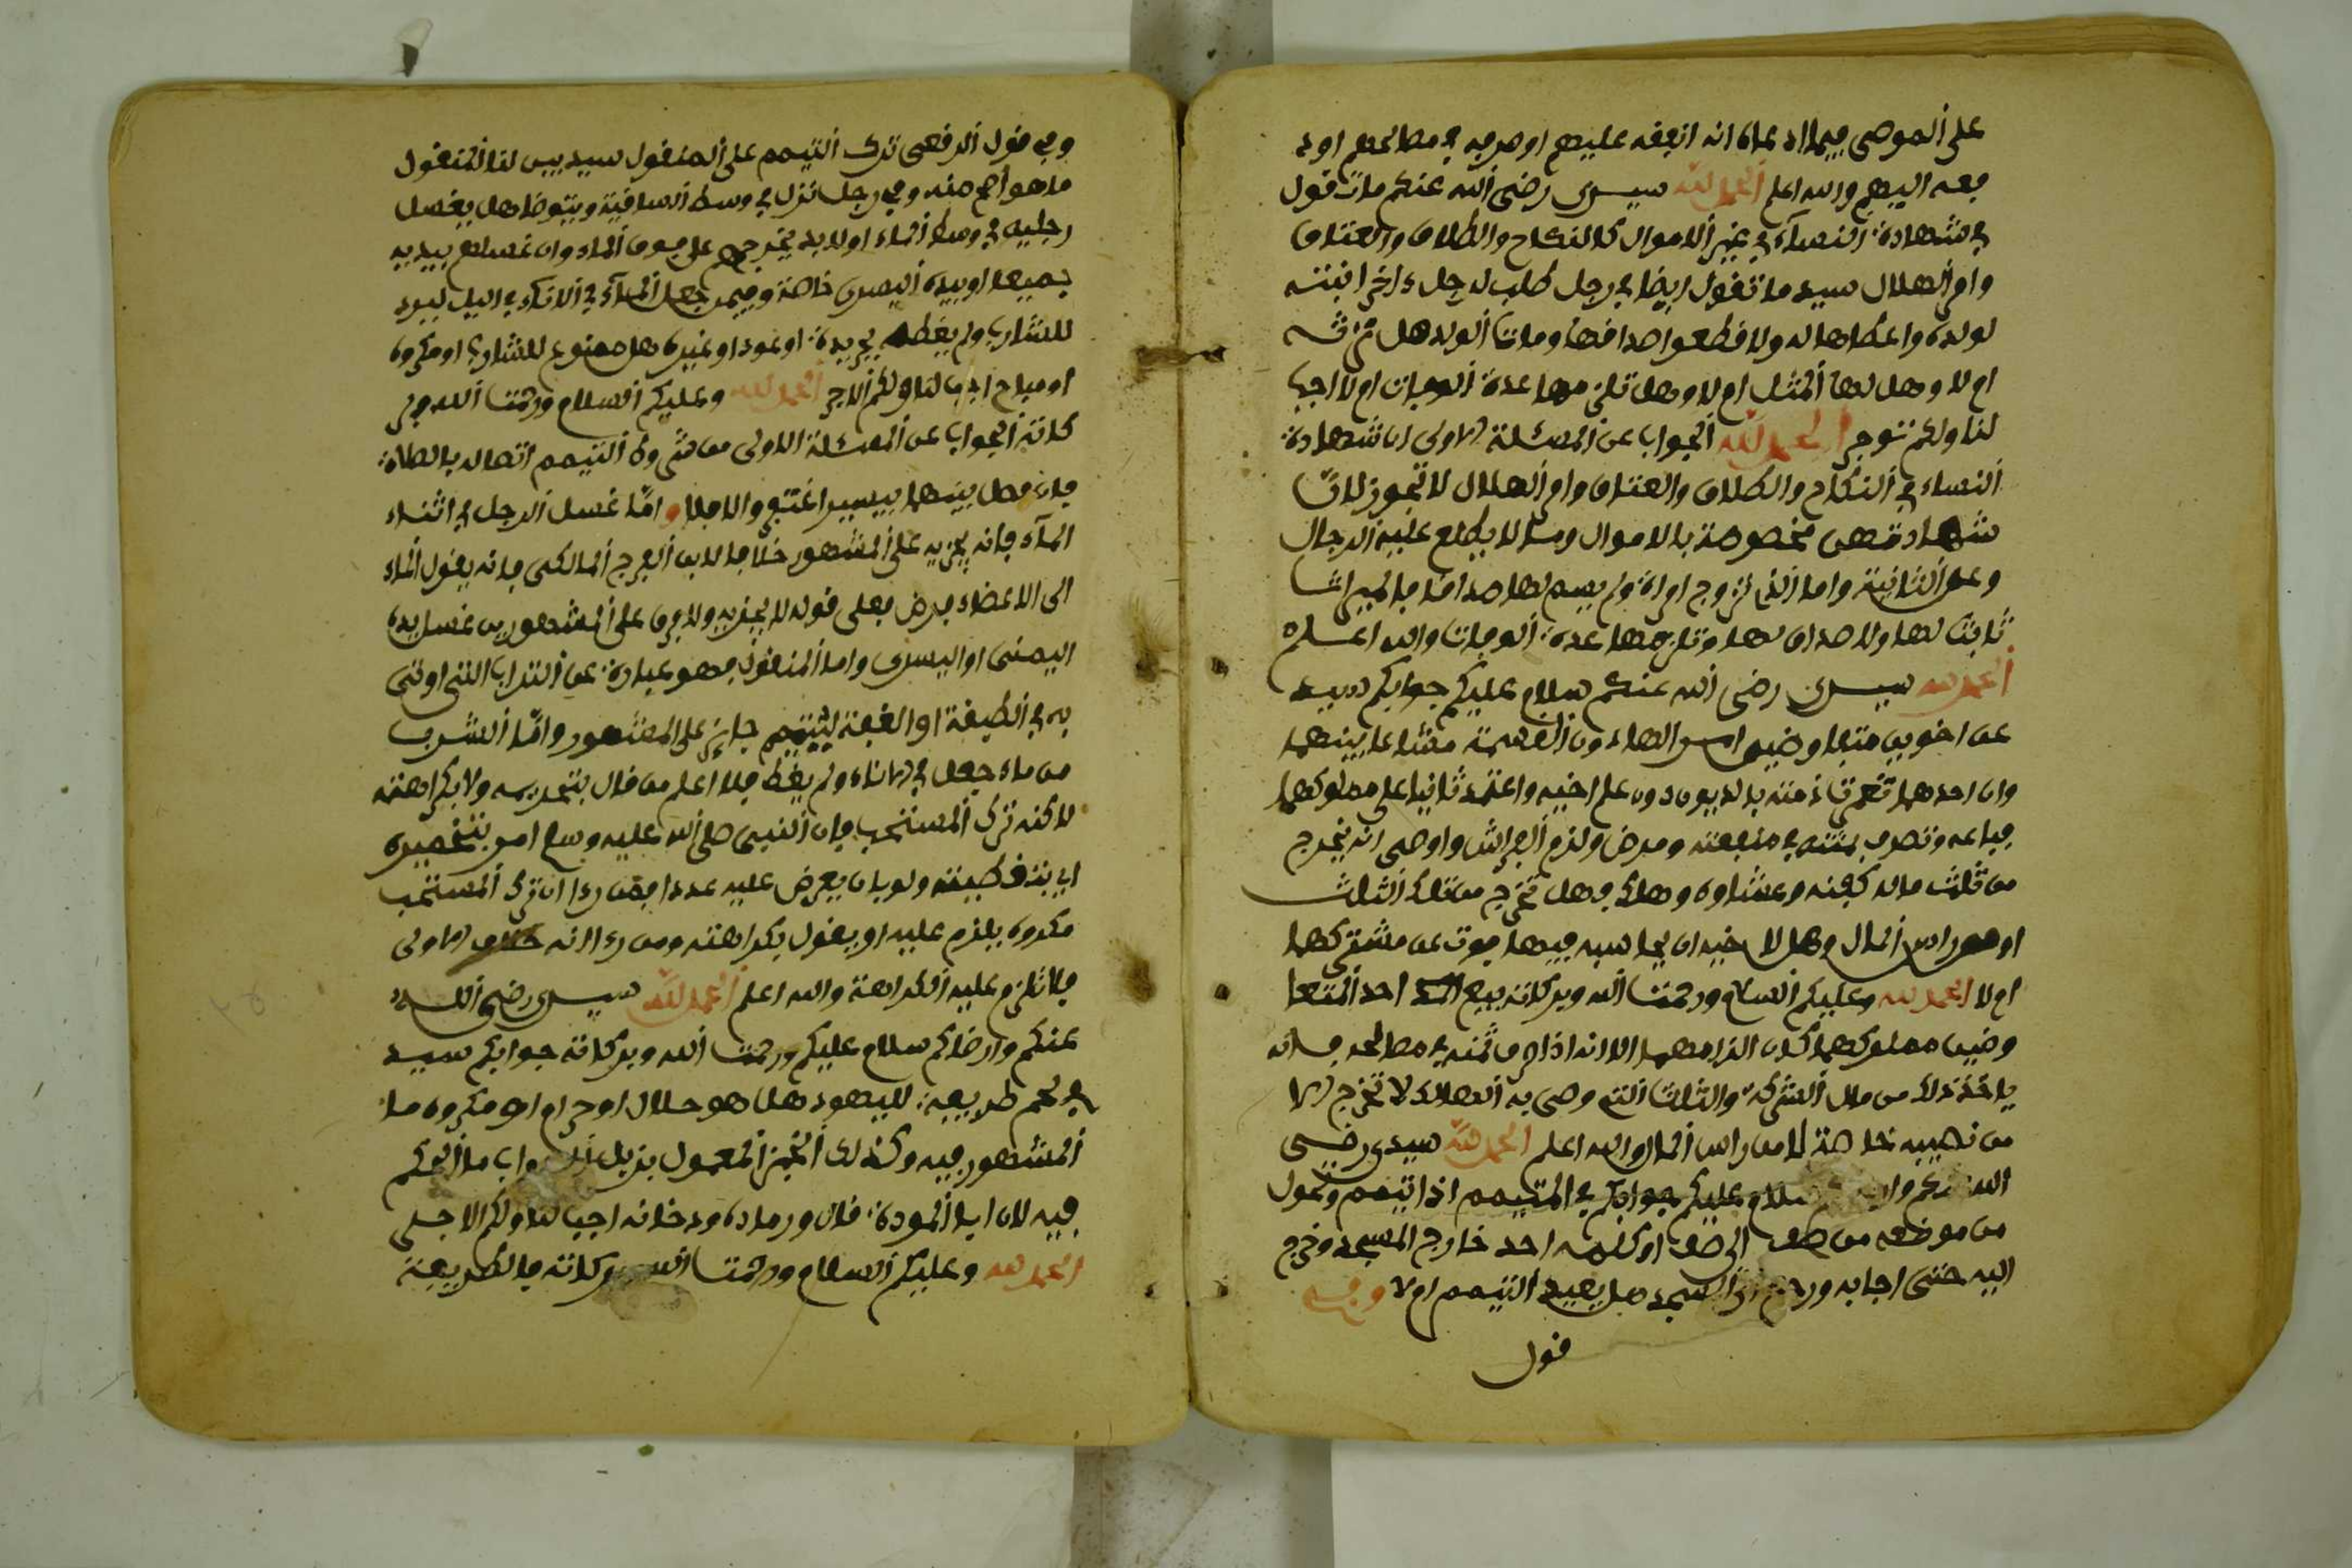 على الموصى فيما ادعاه انه انفقه عليهم او صرفه في مصالحهم او د
فعه اليهم والله اعلم الحمد لله سيدي رضي الله عنكم ما تقول
في شهادة النساء في غير الاموال كالنكاح والطلاق والعتاق
وام الهلال سيد ما تقول ايضا في رجل طلب لرجل ءاخر ابنته
لولده واعطاها له ولا قطعوا صداقها ومات الولد هل ترثه
ام لا وهل لها المثل ام لا وهل تلزمها عدة الوفات ام لا اجب
لنا ولكم توجر الحمد لله الجواب عن المسئلة الاولى ان شهادة
النساء في النكاح والطلاق والعتاق وام الهلال لا تجوز لان
شهادتهن مخصوصة بالاموال وما لا يطلع عليه الرجال
وعن الثانية واما الذي تزوج امراة ولم يسم لها صداقا فالميراث
ثابت لها ولا صداق لها وتلزمها عدة الوفات والله اعلم
الحمد لله سيدي رضي الله عنكم سلام عليكم جوابكم سيد
عن اخوين متفاوضين القسمة مشاعا بينهما
وان احدهما تعمرت ذمته بالديون دون علم اخيه واعتمد ثانيا على مملوكهما
فباعه وتصرف بثمنه في منفعته ومرض ولزم الفراش واوصى ان يخرج
من ثلث ماله كفنه وعشاوه وهلك فهل تخرج من تلك الثلث
او من راس المال وهل لاخيه ان يحاسبه فيها فوت عن مشتركهما
ام لا الحمد لله وعليكم السلام ورحمت الله وبركاته بيع احد المتفا
وضين مملوكهما كان الزامهما الا انه اذا صرف ثمنه في مصالحه فانه
ياخذ ذلك من مال الشركة والثلث التي وصى به الهالك لا تخرج الا
من نصيبه خاصة لا من راس المال والله اعلم الحمد لله سيدي رضي
الله عنكم سلام عليكم جوابكم في المتيمم اذا تيمم وتحول
من موضعه من صف الى صف او كلمه احد خارج المسجد وخرج
اليه حتى اجابه ورجع الى المسجد هل يعيد التيمم ام لا وفي
قول
وفي قول الرفعي ترك التيمم على المنقول سيد بين لنا المنقول
ما هو اهم منه وفي رجل نزل في وسط الساقية ويتوضا هل يغسل
رجليه في وسط الماء او لا بد يخرجهم على فوق الماء وان غسلهم بيديه
جميعا او بيده اليسرى خاصة وفيمن جعل الماء في الاناء في اليل ليبرد
للشارب ولم يغطه بجريدة او عود او غيره هل ممنوع للشارب او مكروه
او مباح اجب لنا ولكم الاجر الحمد لله وعليكم السلام ورحمت الله وبر
كاته الجواب عن المسئلة الاولى من شروط التيمم اتصاله بالصلاة
فان فصل بينهما بيسير اغتفر والا فلا واما غسل الرجل في اثناء
الماء فانه يجزيه على المشهور خلافا لابي الفرج المالكي فانه يقول الماء
الى الاعضاء فرض فعلى قوله لا يجزيه ولا فرق على المشهور بين غسل يده
اليمنى او اليسرى واما المنقول فهو عبارة عن التراب التي اوتي
به في الطيفة او القفة ليتيمم جاىز على المشهور واما الشرب
من ماء جعل في الاناء ولم يغط فلا اعلم من قال بتحريمه ولا بكراهته
لاكنه ترك المستحب فان النبي صلى الله عليه وسلم امر بتخميره
اي بتغطيته ولو بان يعرض عليه عودا فمن رءا ان ترك المستحب
مكروه يلزم عليه او يقول بكراهته ومن رءا انه خلاف الاولى
فلا تلزم عليه الكراهة والله اعلم الحمد لله سيدي رضي الله
عنكم وارضاكم سلام عليكم ورحمت الله وبركاته جوابكم سيد
في لحم طريفة لليهود هل هو حلال او حرام او مكروه ما
المشهور فيه وكذلك الخبز المعمول بزبل الدواب ما الحكم
فيه لان ايا المودة قال ورماده ودخانه اجب لنا ولكم الاجر
الحمد لله وعليكم السلام ورحمت الله وبركاته فالطريفة